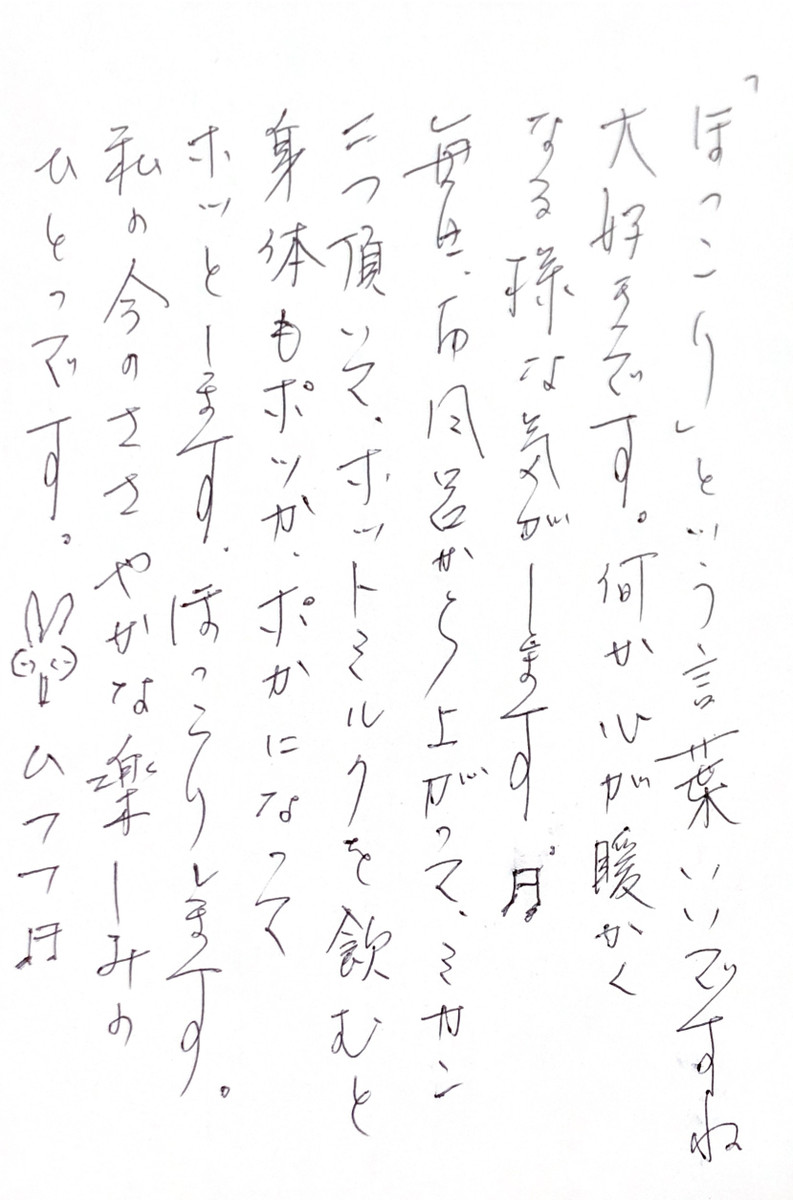 「ほっこり」という言葉いいですね
大好きです。何か心が暖かく
なる様な気がします♬
毎日、お風呂から上がって、ミカン
二つ頂いて、ホットミルクを飲むと
身体もポッカ、ポカになって
ホッとします。ほっこりします。
私の今のささやかな楽しみの
ひとつです。 フフ♬